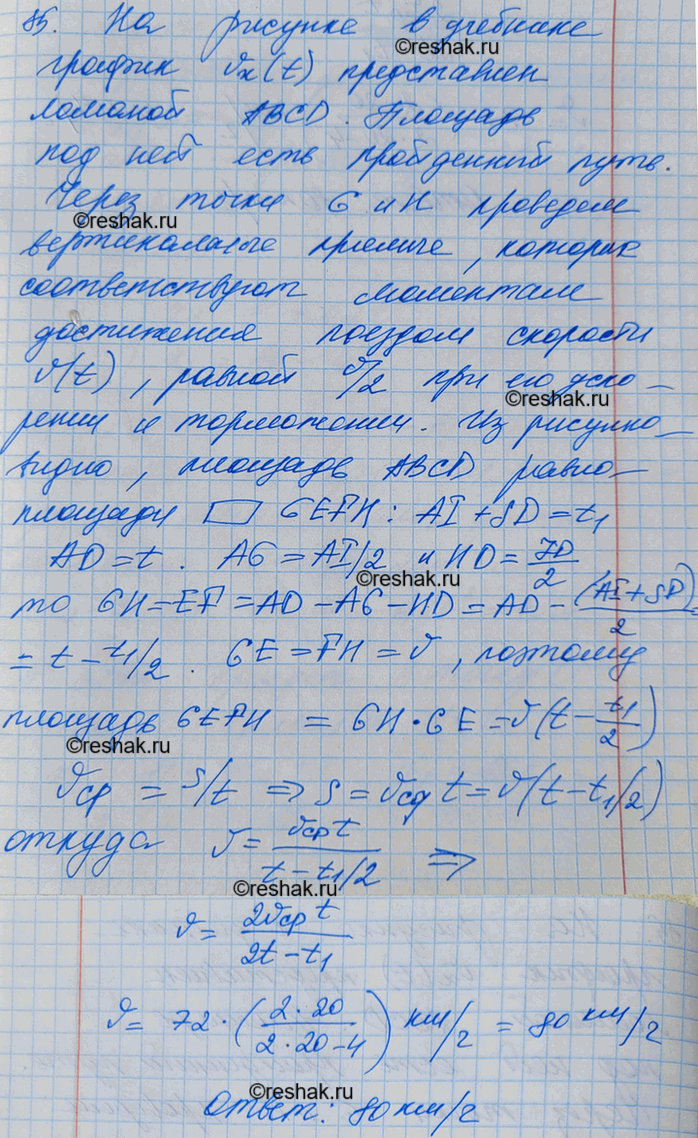 85. На рисунке в учебнике
©reshak.ru
график υx(t) представлен
ломаной ABCD. Площадь
под ней есть пройденный путь.
Через точки G и H проведем
©reshak.ru
вертикальные прямые, которые
соответствуют моментам
достижения поездом скорости
υ(t), равной υ/2 при его уско-
©reshak.ru
рении и торможении. Из рисунка
видно, площадь ABCD равна
площади ▱ GEFH: AI + JD = t₁
AD = t. AG = AI/2 и HD = JD/2
©reshak.ru
то GH = EF = AD - AG - HD = AD - (AI + JD)/2 =
= t - t₁/2. GE = FH = υ, поэтому
площадь GEFH = GH · GE = υ(t - t₁/2)
©reshak.ru
υср = S/t ⇒ S = υср t = υ(t - t₁/2)
откуда υ = υср t / (t - t₁/2) ⇒
©reshak.ru
υ = 2υср t / (2t - t₁)
υ = 72 · (2·20 / (2·20 - 4)) км/г = 80 км/г
©reshak.ru
Ответ: 80 км/г